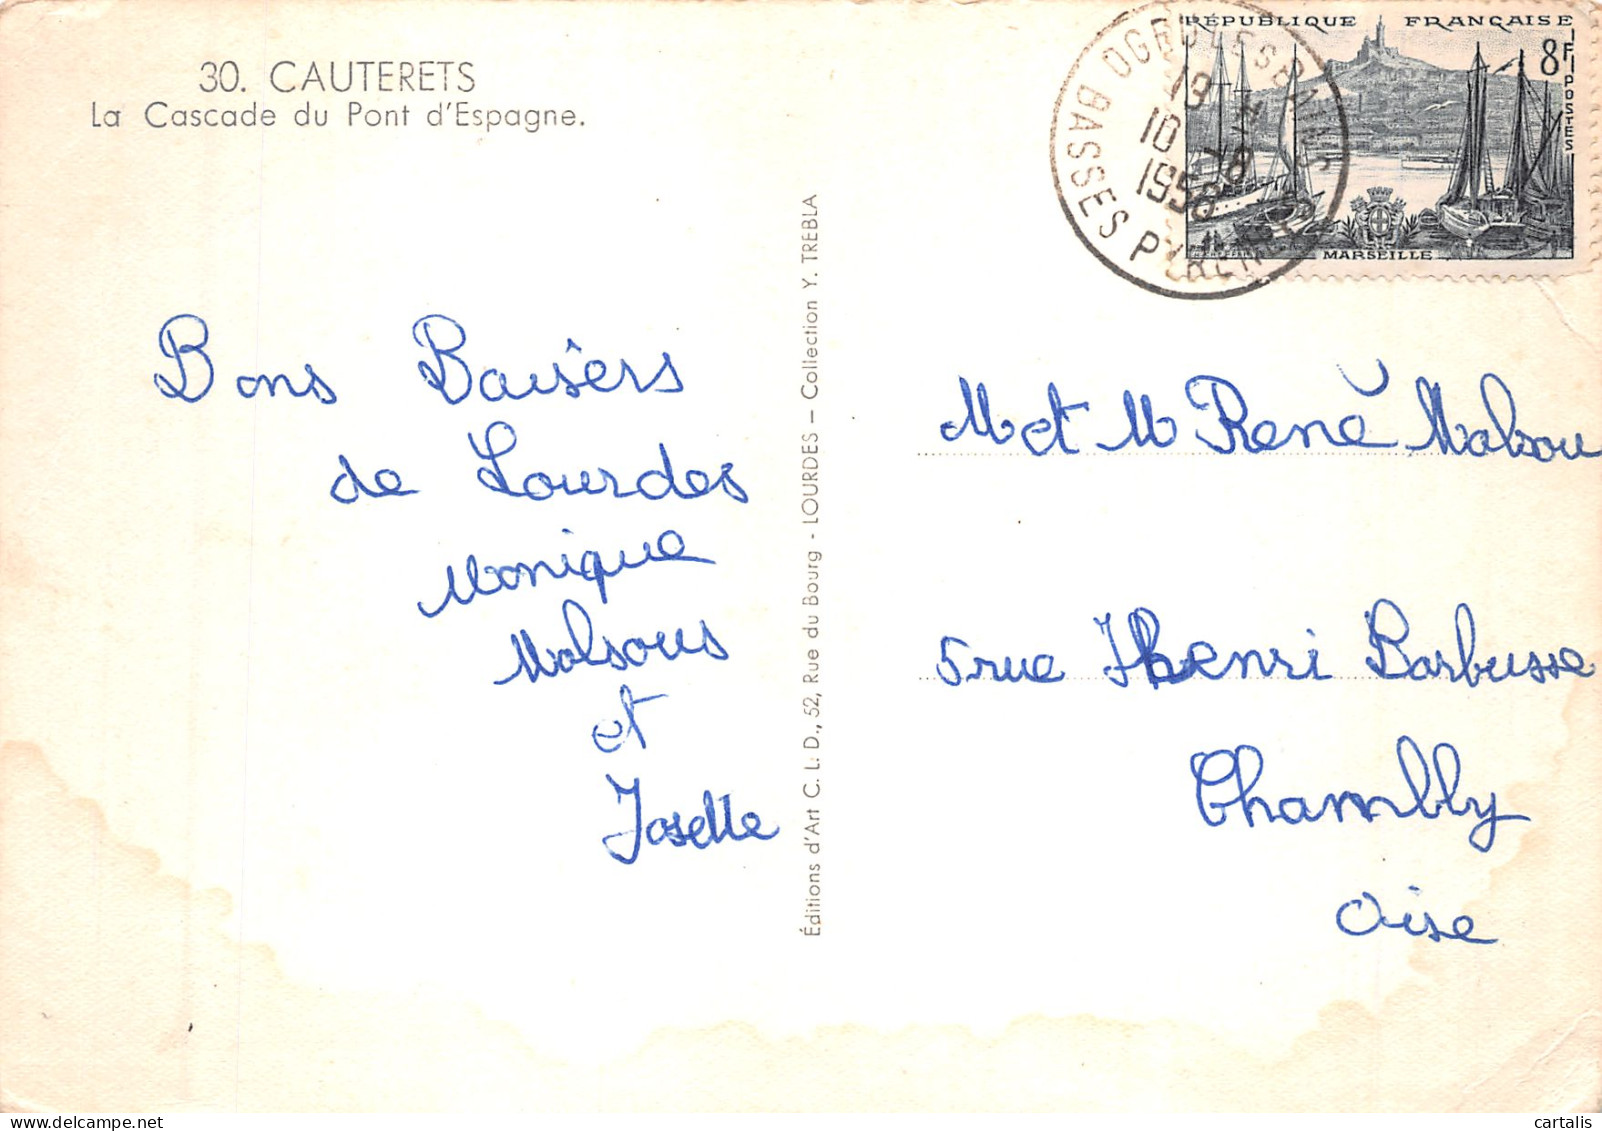 30. CAUTERETS
La Cascade du Pont d'Espagne.
Bons Baisers
de Lourdes
Monique
Malsous
et
Joselle
Éditions d'Art C. L. D., 52, Rue du Bourg - LOURDES — Collection Y. TREBLA
RÉPUBLIQUE FRANÇAISE
8F
POSTES
MARSEILLE
BASSES PYRENEES
19
10
1958
M et M René Malsou
5 rue Henri Barbusse
Chambly
Oise
cartalis